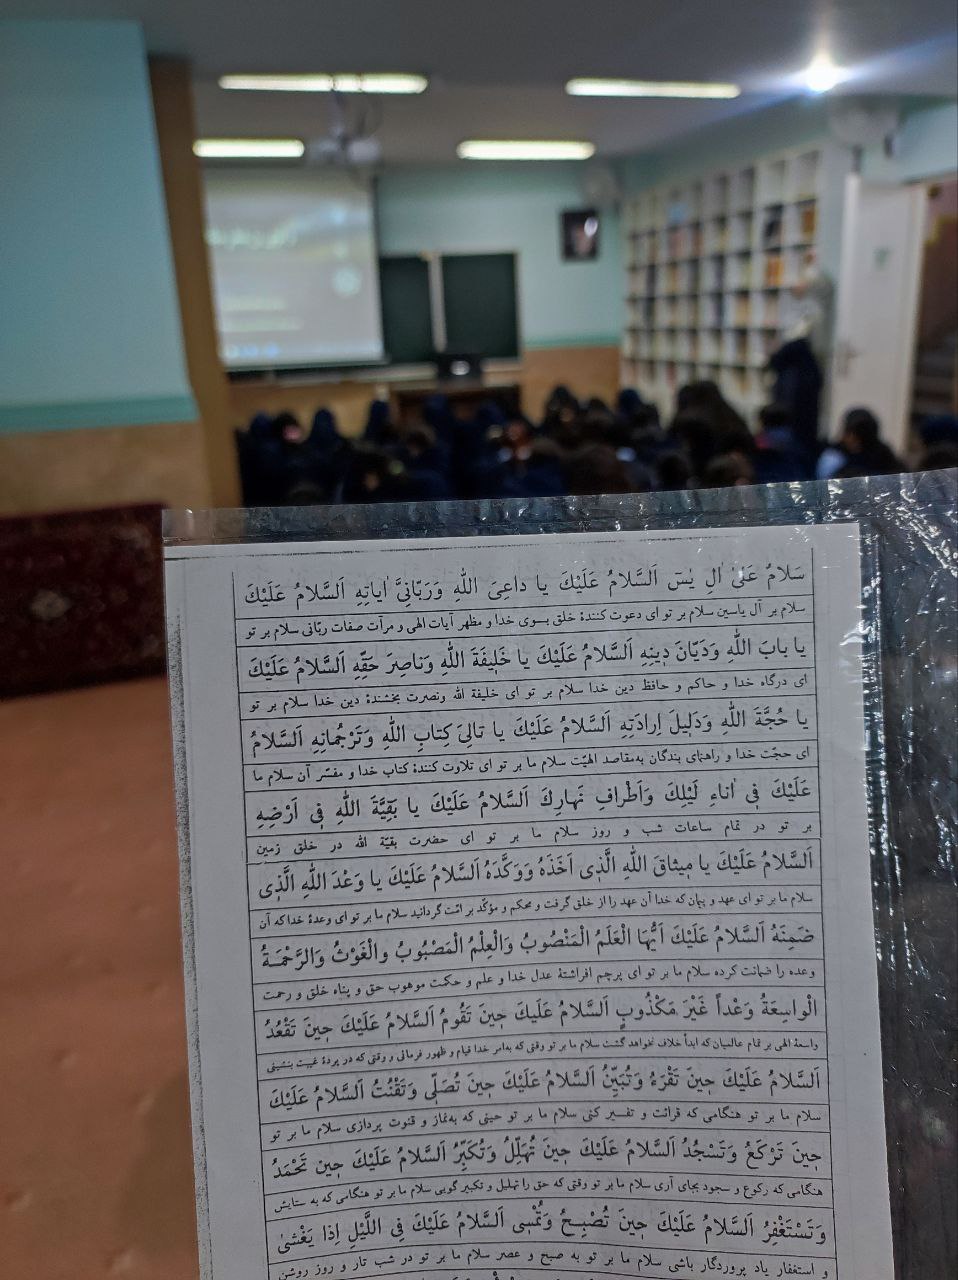 سَلامٌ عَلىٰ اٰلِ يٰسۤ اَلسَّلامُ عَلَيْكَ يا داعِىَ اللّٰهِ وَرَبّانِىَّ اٰياتِهِ اَلسَّلامُ عَلَيْكَ
سلام بر آل یاسین سلام بر تو ای دعوت کنندهٔ خلق بسوی خدا و مظهر آیات الهی و مرآت صفات ربّانی سلام بر تو
يا بابَ اللّٰهِ وَدَيّانَ دينِهِ اَلسَّلامُ عَلَيْكَ يا خَليفَةَ اللّٰهِ وَناصِرَ حَقِّهِ اَلسَّلامُ عَلَيْكَ
ای درگاه خدا و حاکم و حافظ دین خدا سلام بر تو ای خلیفة الله ونصرت بخشندهٔ دین خدا سلام بر تو
يا حُجَّةَ اللّٰهِ وَدَليلَ اِرادَتِهِ اَلسَّلامُ عَلَيْكَ يا تالِىَ كِتابِ اللّٰهِ وَتَرْجُمانِهِ اَلسَّلامُ
ای حجّت خدا و راهنمای بندگان به‌مقاصد الهیّت سلام ما بر تو ای تلاوت کنندهٔ کتاب خدا و مفسّر آن سلام ما
عَلَيْكَ فى اٰناءِ لَيْلِكَ وَاَطْرافِ نَهارِكَ اَلسَّلامُ عَلَيْكَ يا بَقِيَّةَ اللّٰهِ فى اَرْضِهِ
بر تو در تمام ساعات شب و روز سلام ما بر تو ای حضرت بقیّة الله در خلق زمین
اَلسَّلامُ عَلَيْكَ يا ميثاقَ اللّٰهِ الَّذى اَخَذَهُ وَوَكَّدَهُ اَلسَّلامُ عَلَيْكَ يا وَعْدَ اللّٰهِ الَّذى
سلام ما بر تو ای عهد و پیمان که خدا آن عهد را از خلق گرفت و محکم و مؤکّد بر امّت گردانید سلام ما بر تو ای وعدهٔ خدا که آن
ضَمِنَهُ اَلسَّلامُ عَلَيْكَ اَيُّهَا الْعَلَمُ الْمَنْصُوبُ وَالْعِلْمُ الْمَصْبُوبُ والْغَوْثُ وَالرَّحْمَةُ
وعده را ضمانت کرده سلام ما بر تو ای پرچم افراشتهٔ عدل خدا و علم و حکمت موهوب حق و پناه خلق و رحمت
الْواسِعَةُ وَعْداً غَيْرَ مَكْذُوبٍ اَلسَّلامُ عَلَيكَ حينَ تَقُومُ اَلسَّلامُ عَلَيْكَ حينَ تَقْعُدُ
واسعهٔ الهی بر تمام عالمیان که ابداً خلاف نخواهد گشت سلام ما بر تو وقتی که به‌امر خدا قیام و ظهور فرمائی و وقتی که در پردهٔ غیبت بنشینی
اَلسَّلامُ عَلَيْكَ حينَ تَقْرَءُ وَتُبَيِّنُ اَلسَّلامُ عَلَيْكَ حينَ تُصَلّى وَتَقْنُتُ اَلسَّلامُ عَلَيْكَ
سلام ما بر تو هنگامی که قرائت و تفسیر کنی سلام ما بر تو حینی که به‌نماز و قنوت پردازی سلام ما بر تو
حينَ تَرْكَعُ وَتَسْجُدُ اَلسَّلامُ عَلَيْكَ حينَ تُهَلِّلُ وَتُكَبِّرُ اَلسَّلامُ عَلَيْكَ حين تَحْمَدُ
هنگامی که رکوع و سجود بجای آری سلام ما بر تو وقتی که حق را تهلیل و تکبیر گویی سلام ما بر تو هنگامی که به ستایش
وَتَسْتَغْفِرُ اَلسَّلامُ عَلَيْكَ حينَ تُصْبِحُ وَتُمْسى اَلسَّلامُ عَلَيْكَ فِى اللَّيْلِ اِذا يَغْشىٰ
و استغفار یاد پروردگار باشی سلام ما بر تو به صبح و عصر سلام ما بر تو در شب تار و روز روشن